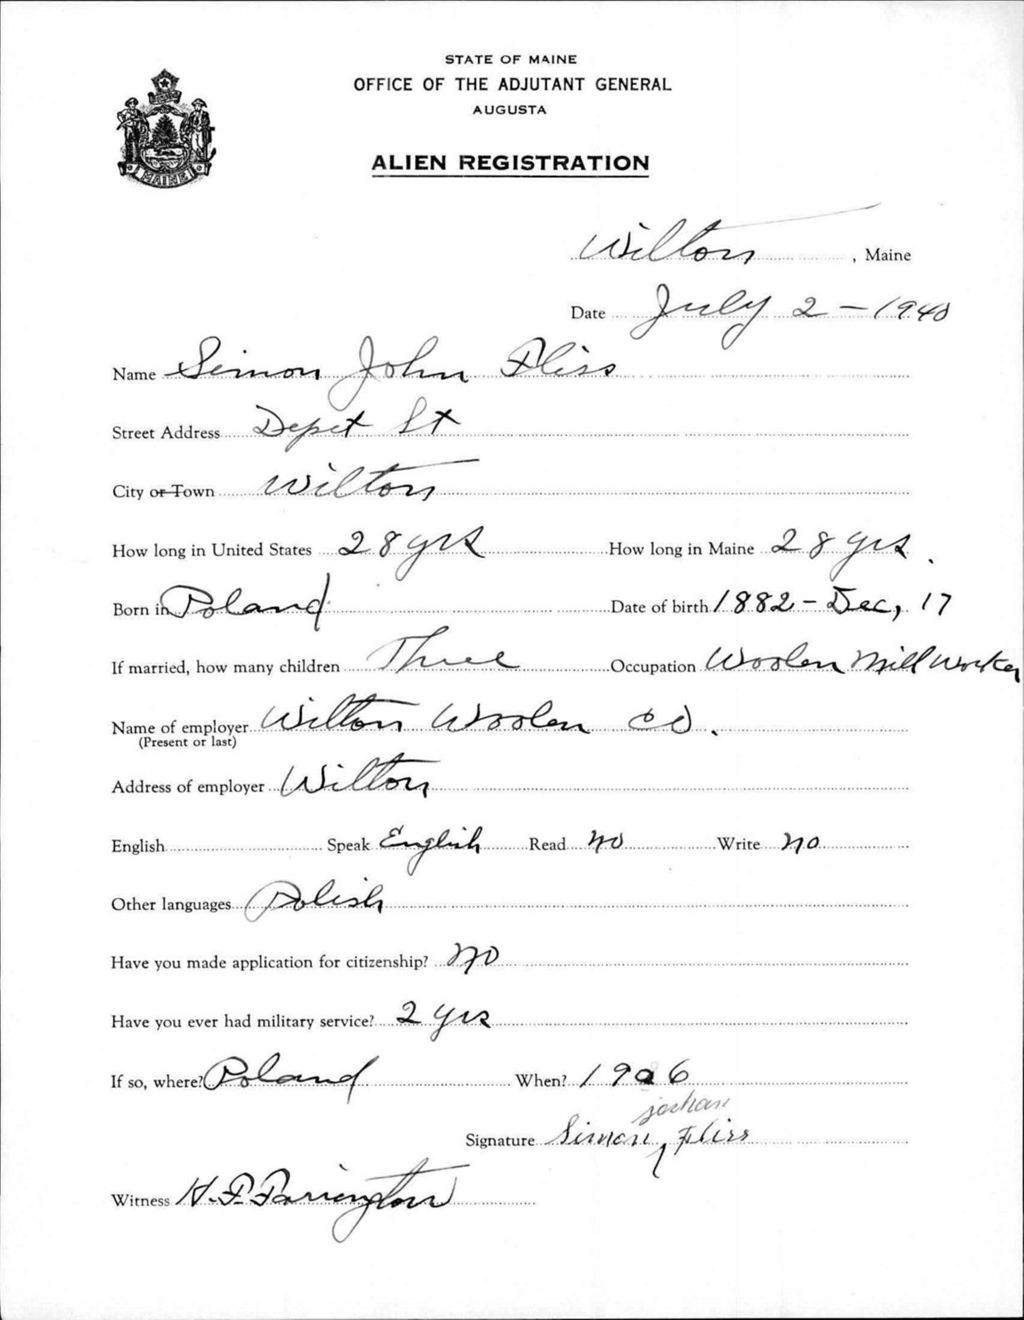 STATE OF MAINE
OFFICE OF THE ADJUTANT GENERAL
AUGUSTA
ALIEN REGISTRATION
MAINE
Wilton, Maine
Date July 2 - 1940
Name Simon John Fliss
Street Address Depot St
City or Town Wilton
How long in United States 28 yrs How long in Maine 28 yrs.
Born in Poland Date of birth 1882 - Dec, 17
If married, how many children Three Occupation Woolen Mill Worker
Name of employer Wilton Woolen CO.
(Present or last)
Address of employer Wilton
English Speak English Read No Write No
Other languages Polish
Have you made application for citizenship? No
Have you ever had military service? 2 yrs
If so, where? Poland When? 1906
Signature Simon Fliss
Witness H. P. Parrington